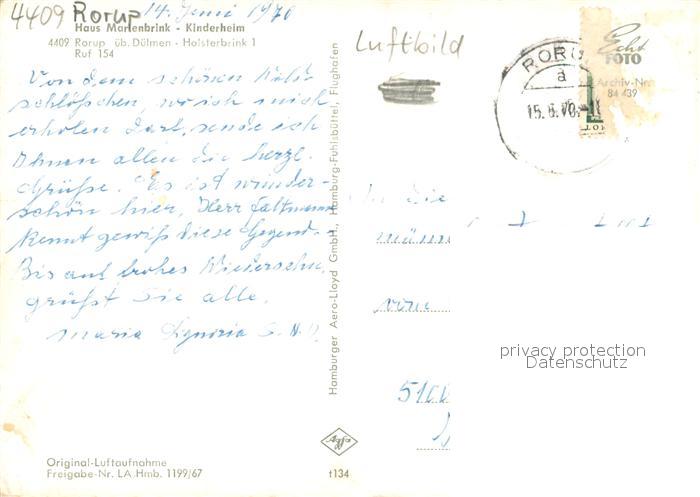 4409 Rorup
14. Juni 1970
Haus Marienbrink - Kinderheim
4409 Rorup üb. Dülmen - Holsterbrink 1
Ruf 154
Von dem schönen Wald-
schlößchen, wo ich mich
erholen darf, sende ich
Ihnen allen die herzl.
Grüße. Es ist wunder-
schön hier, Herr Faltmann
kennt gewiß diese Gegend.
Bis auf frohes Wiedersehn
grüßt Sie alle,
Maria
Original-Luftaufnahme
Freigabe-Nr. LA Hmb. 1199/67
Hamburger Aero-Lloyd GmbH., Hamburg-Fuhlsbüttel, Flughafen
Agfa
t134
Luftbild
RORU
a
15.6.70.-11
Echt
FOTO
Archiv-Nr.
84 439
An die
510
privacy protection
Datenschutz